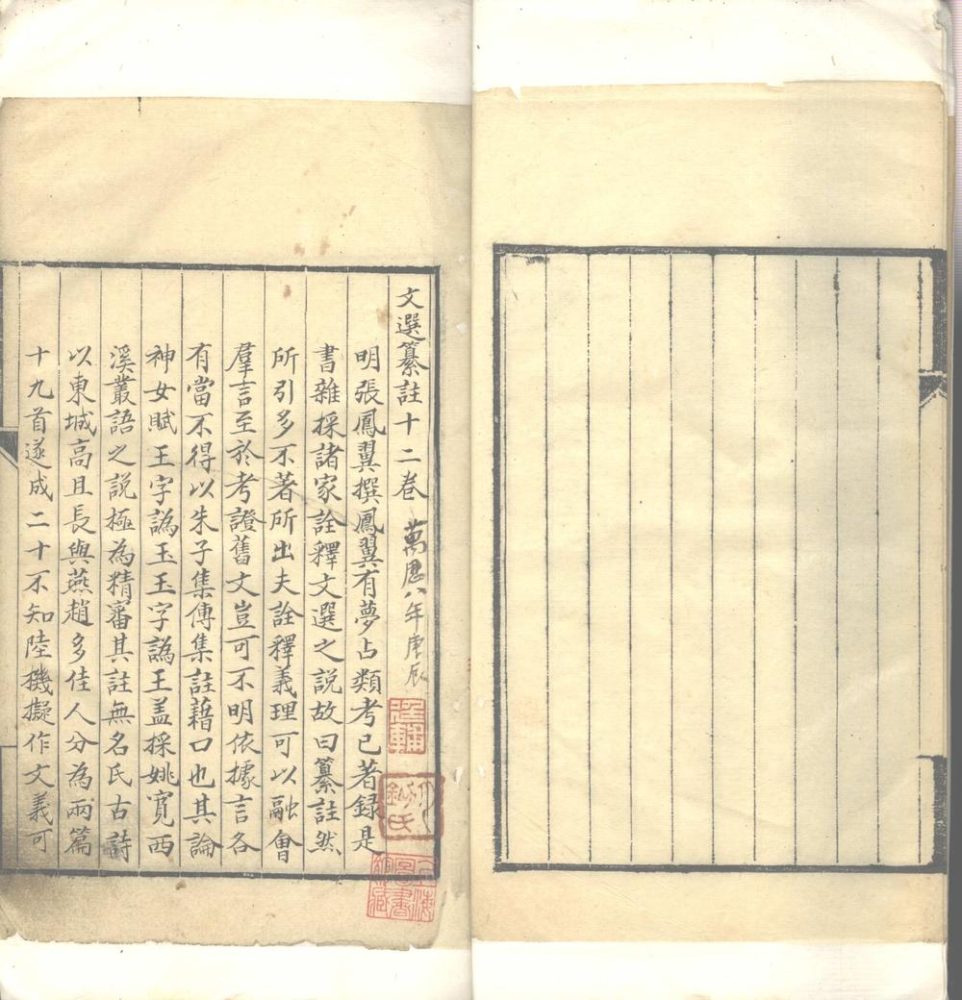 文選纂註十二卷 萬歷八年庚辰
明張鳳翼撰鳳翼有夢占類考已著録是
書雜採諸家詮釋文選之説故曰纂註然
所引多不著所出夫詮釋義理可以融會
羣言至於考證舊文豈可不明依據言各
有當不得以朱子集傳集註藉口也其論
神女賦王字譌玉玉字譌王盖採姚寛西
溪叢語之説極為精審其註無名氏古詩
以東城高且長與燕趙多佳人分為兩篇
十九首遂成二十不知陸機擬作文義可